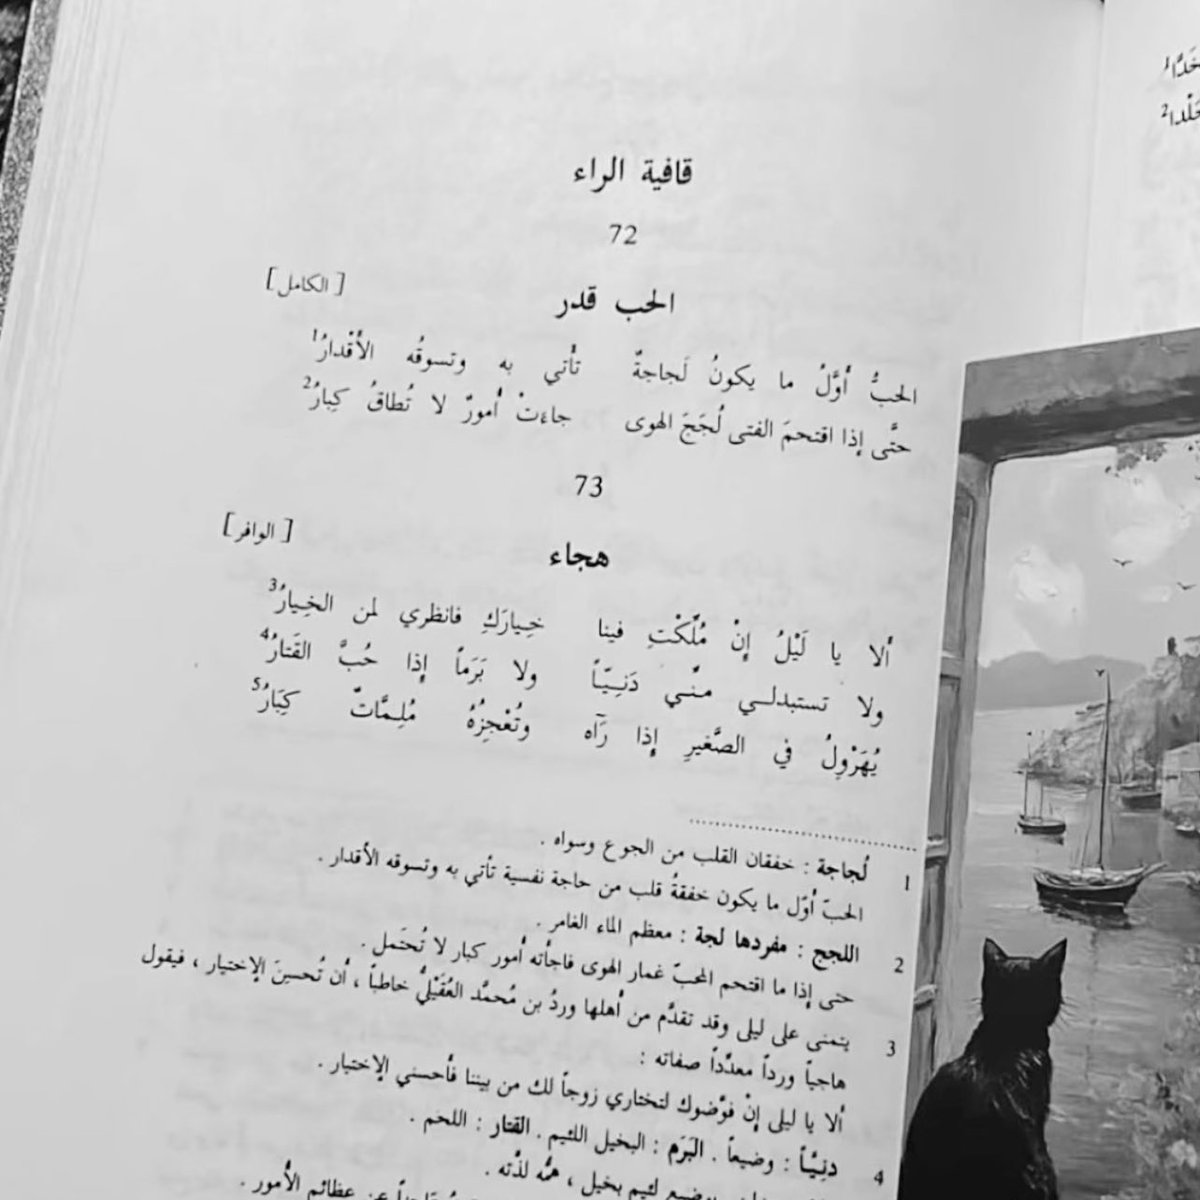 قافية الراء
72
الحب قدر
[ الكامل ]
الحبُّ أَوَّلُ ما يكونُ لَجاجةٌ تأتي به وتسوقُه الأَقْدارُ1
حتَّى إذا اقتحمَ الفتى لُجَجَ الهوى جاءتْ أُمورٌ لا تُطاقُ كِبارُ2
73
هجاء
[ الوافر ]
ألا يا لَيْلُ إِنْ مُلِّكْتِ فينا خِيارَكِ فانظري لمن الخِيارُ3
ولا تستبدلي منّي دَنِيّاً ولا بَرَماً إِذا حُبَّ القَتارُ4
يُهَرْوِلُ في الصَّغيرِ إِذا رَآه وتُعْجِزُهُ مُلِمَّاتٌ كِبَارُ5
1 لُجاجة : خفقان القلب من الجوع وسواه .
الحبّ أوّل ما يكون خفقةُ قلب من حاجة نفسية تأتي به وتسوقه الأقدار .
2 اللجج : مفردها لجة : معظم الماء الغامر .
حتى إذا ما اقتحم المحبّ غمار الهوى فاجأته أمور كبار لا تُحتَمل .
3 يتمنى على ليلى وقد تقدَّم من أهلها وردُ بن مُحمَّد العُقَيْليُّ خاطباً ، أن تُحسِنَ الإختيار ، فيقول
هاجياً ورداً معدِّداً صفاته :
ألا يا ليلى إنْ فوَّضوك لتختاري زوجاً لك من بيننا فأحسني الإختيار .
4 دنِيّاً : وضيعاً . البَرَم : البخيل اللئيم . القتار : اللحم .
لئيم بخيل ، همّه لذّته .
عن عظائم الأُمور .
خَدَّا1
خُلْدا2